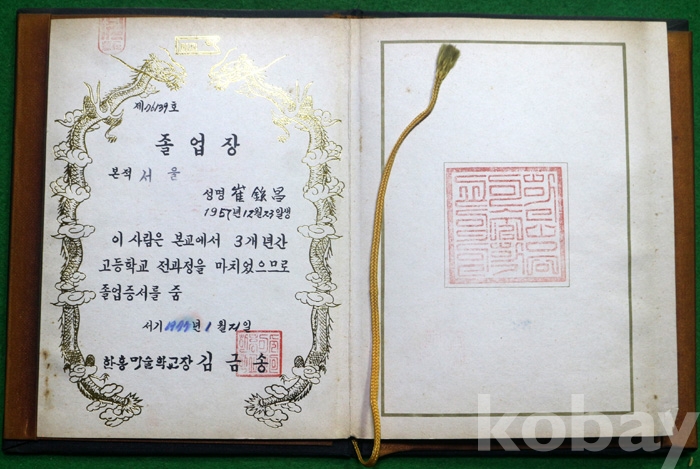 제26139호
졸업장
본적 서울
성명 崔錄昌
1957년 12월 23일생
이 사람은 본교에서 3개년간
고등학교 전과정을 마치었으므로
졸업증서를 줌
서기 년 1월 21일
한흥미술학교장 김금송
kobay